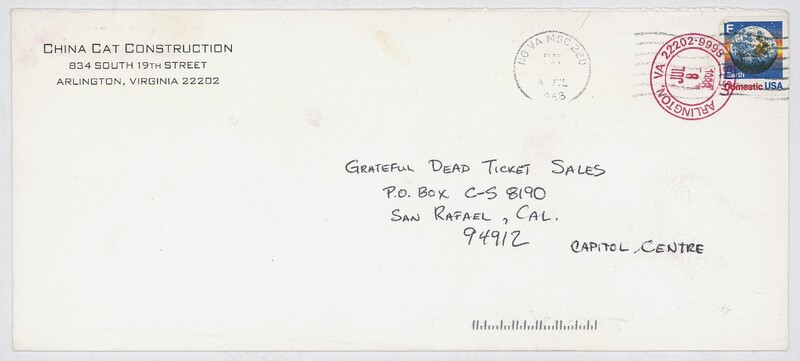 CHINA CAT CONSTRUCTION
834 SOUTH 19TH STREET
ARLINGTON, VIRGINIA 22202
NO VA MSC 220
8 JUL
1988
ARLINGTON, VA 22202-9998
JUL
8
E
Earth
Domestic USA
GRATEFUL DEAD TICKET SALES
P.O. BOX C-S 8190
SAN RAFAEL, CAL.
94912
CAPITOL CENTRE